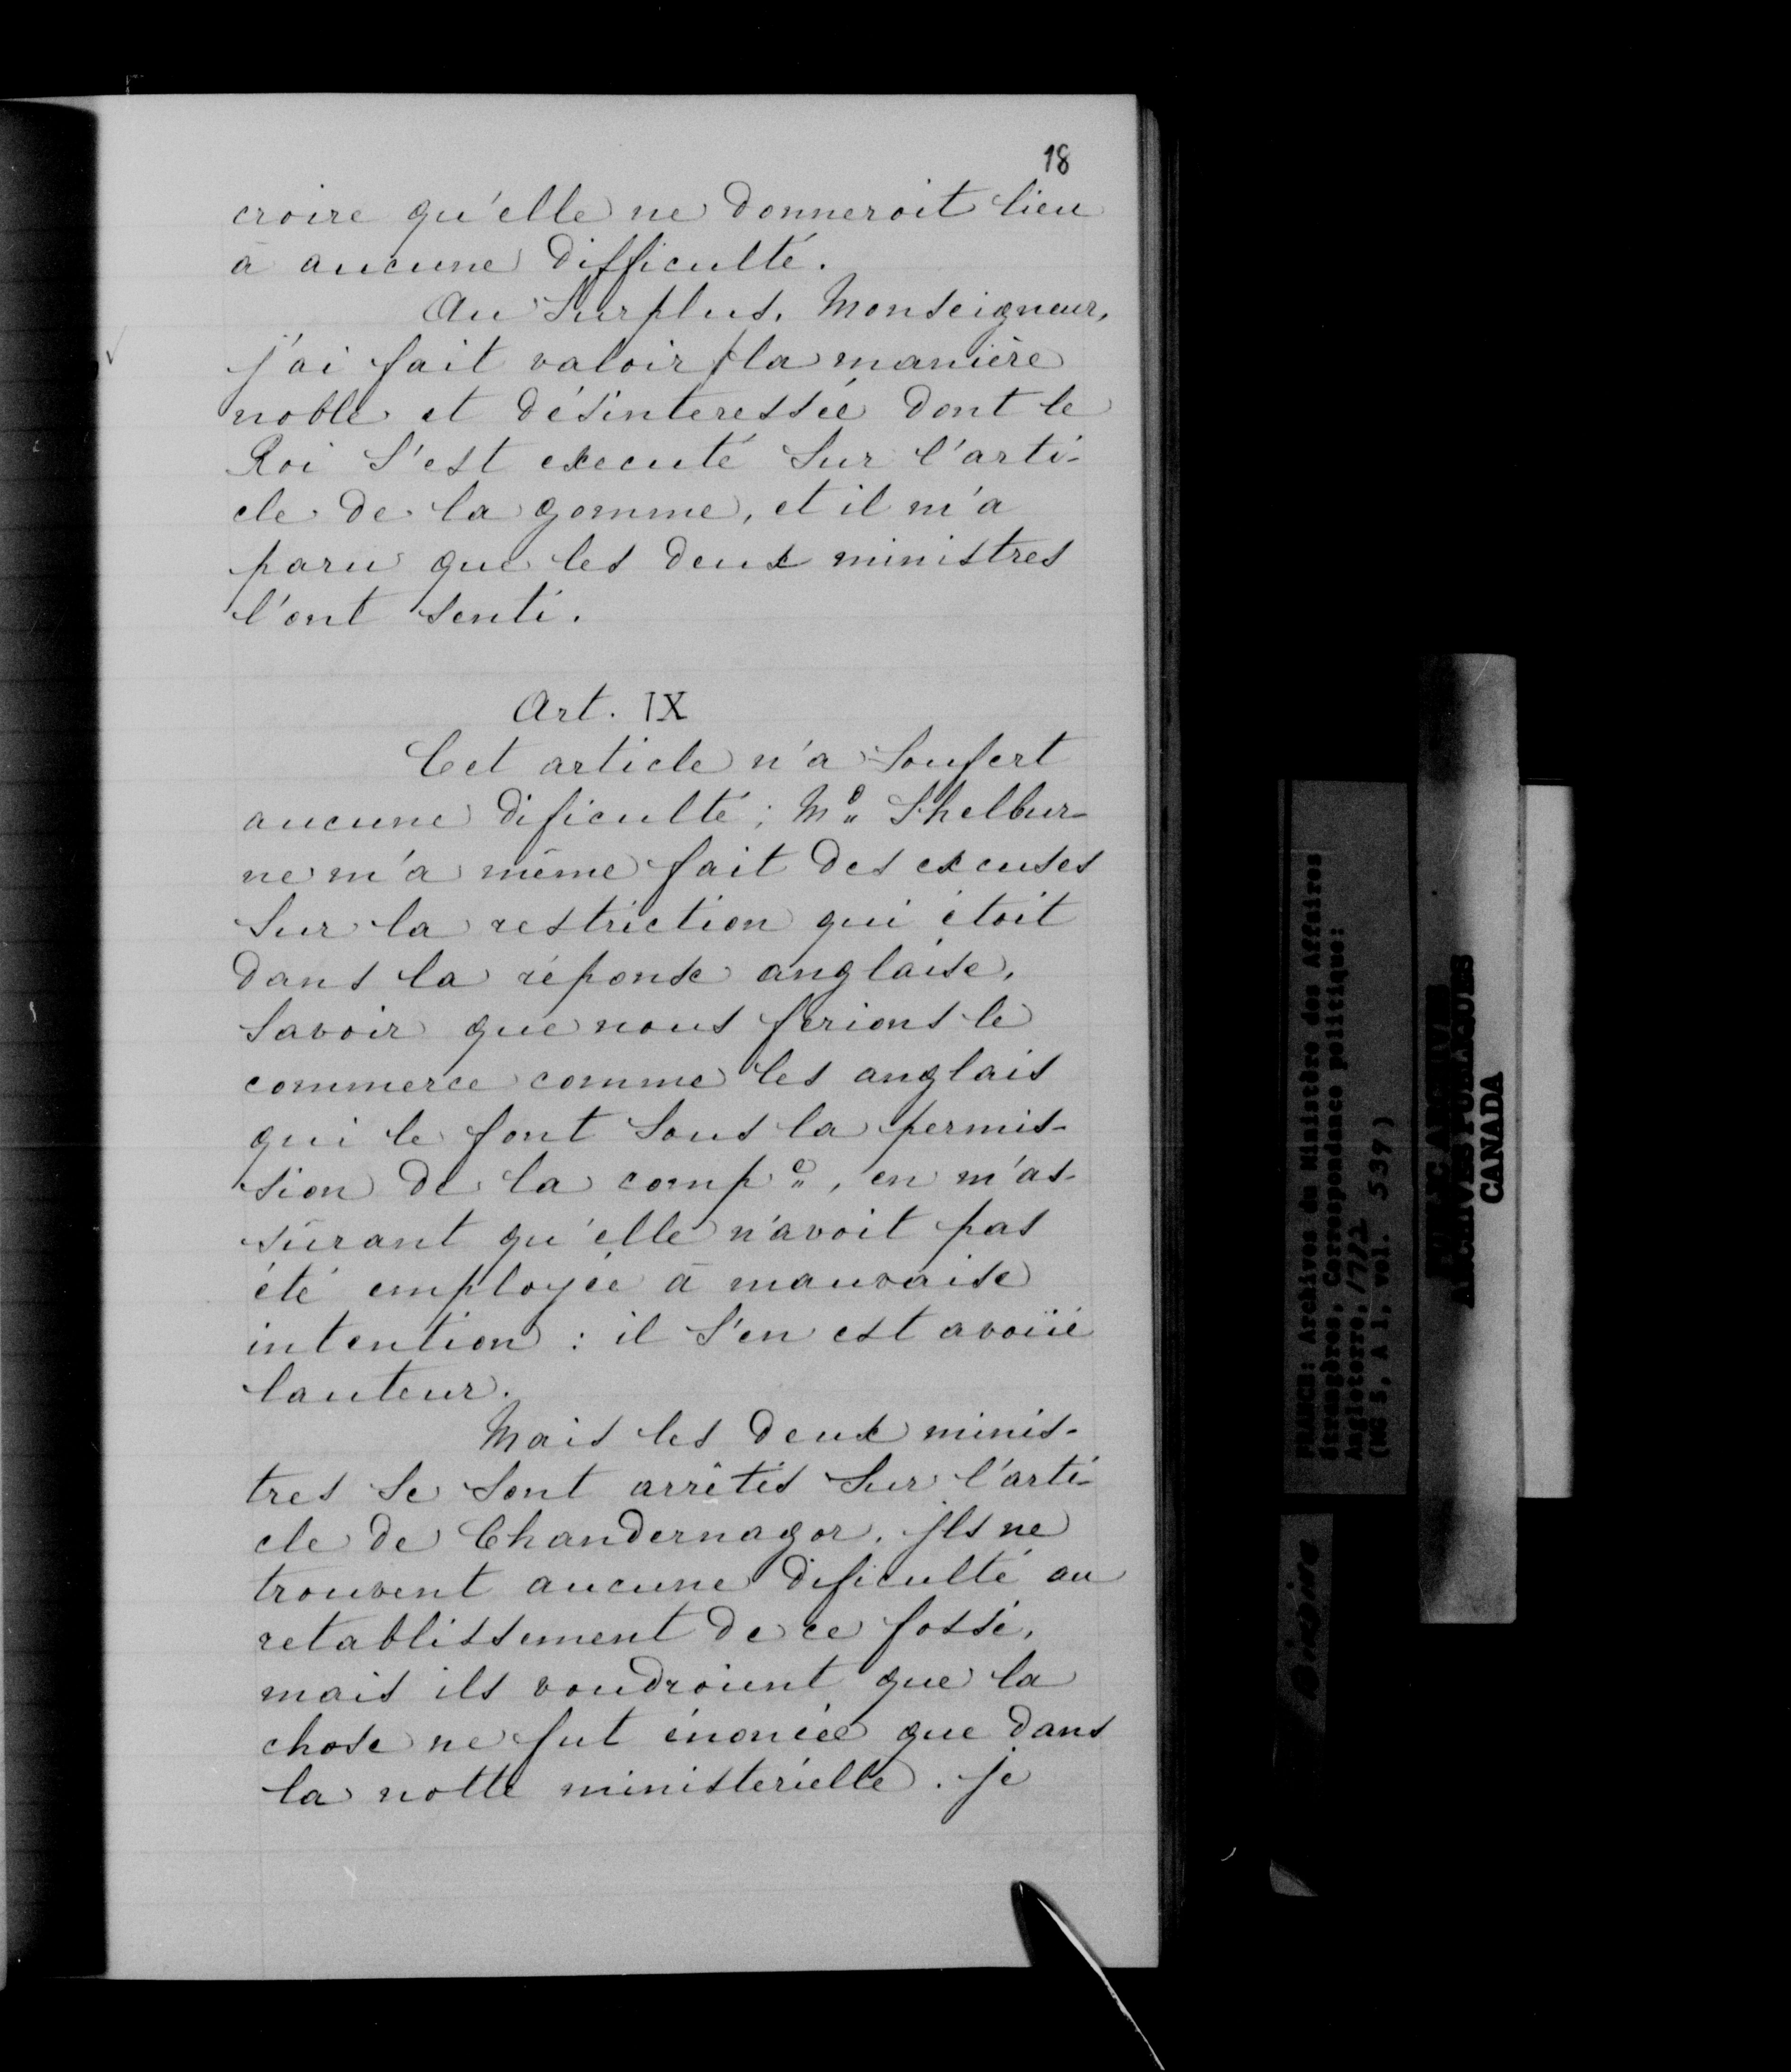 18
croire qu'elle ne donneroit lieu
à aucune difficulté.
Au surplus, Monseigneur,
j'ai fait valoir la manière
noble et désinteressée dont le
Roi s'est executé sur l'arti-
cle de la gomme, et il m'a
paru que les deux ministres
l'ont senti.
Art. IX
Cet article n'a soufert
aucune dificulté; Md Shelbur-
ne m'a même fait des excuses
sur la restriction qui étoit
dans la réponse anglaise,
savoir que nous ferions le
commerce comme les anglais
qui le font sous la permis-
sion de la compe, en m'as-
sûrant qu'elle n'avoit pas
été employée à mauvaise
intention : il s'en est avoüé
lauteur.
Mais les deux minis-
tres se sont arrêtés sur l'arti-
cle de Chandernagor. jls ne
trouvent aucune dificulté au
retablissement de ce fossé,
mais ils voudroient que la
chose ne fut énoncée que dans
la notte ministerielle. je
FRANCE: Archives du Ministère des Affaires
étrangères, Correspondance politique:
Angleterre,
(MG 5, A 1, vol. 539)
PUBLIC ARCHIVES
ARCHIVES PUBLIQUES
CANADA